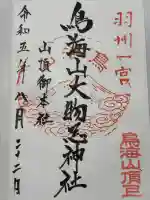 羽州一宮
鳥海山大物忌神社
山頂御本社
令和五年
月二十二日
鳥海山頂